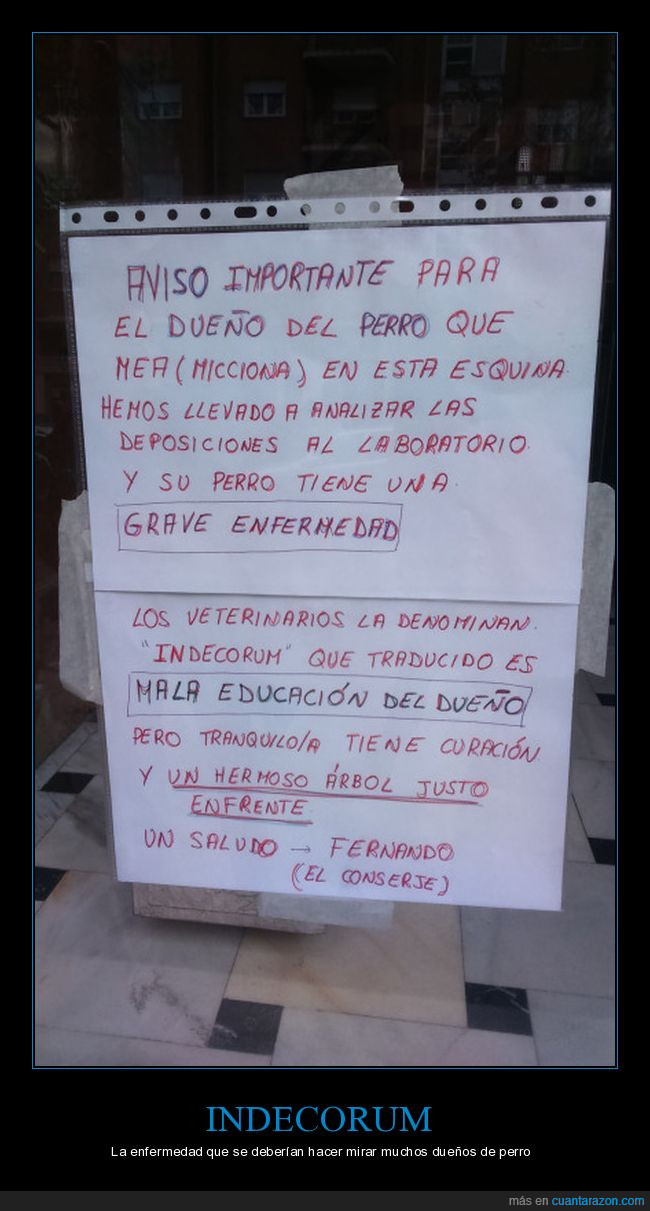 AVISO IMPORTANTE PARA
EL DUEÑO DEL PERRO QUE
MEA (MICCIONA) EN ESTA ESQUINA.
HEMOS LLEVADO A ANALIZAR LAS
DEPOSICIONES AL LABORATORIO.
Y SU PERRO TIENE UNA.
GRAVE ENFERMEDAD
LOS VETERINARIOS LA DENOMINAN.
"INDECORUM" QUE TRADUCIDO ES
MALA EDUCACIÓN DEL DUEÑO
PERO TRANQUILO/A TIENE CURACIÓN
Y UN HERMOSO ÁRBOL JUSTO
ENFRENTE.
UN SALUDO → FERNANDO
(EL CONSERJE)
INDECORUM
La enfermedad que se deberían hacer mirar muchos dueños de perro
más en cuantarazon.com